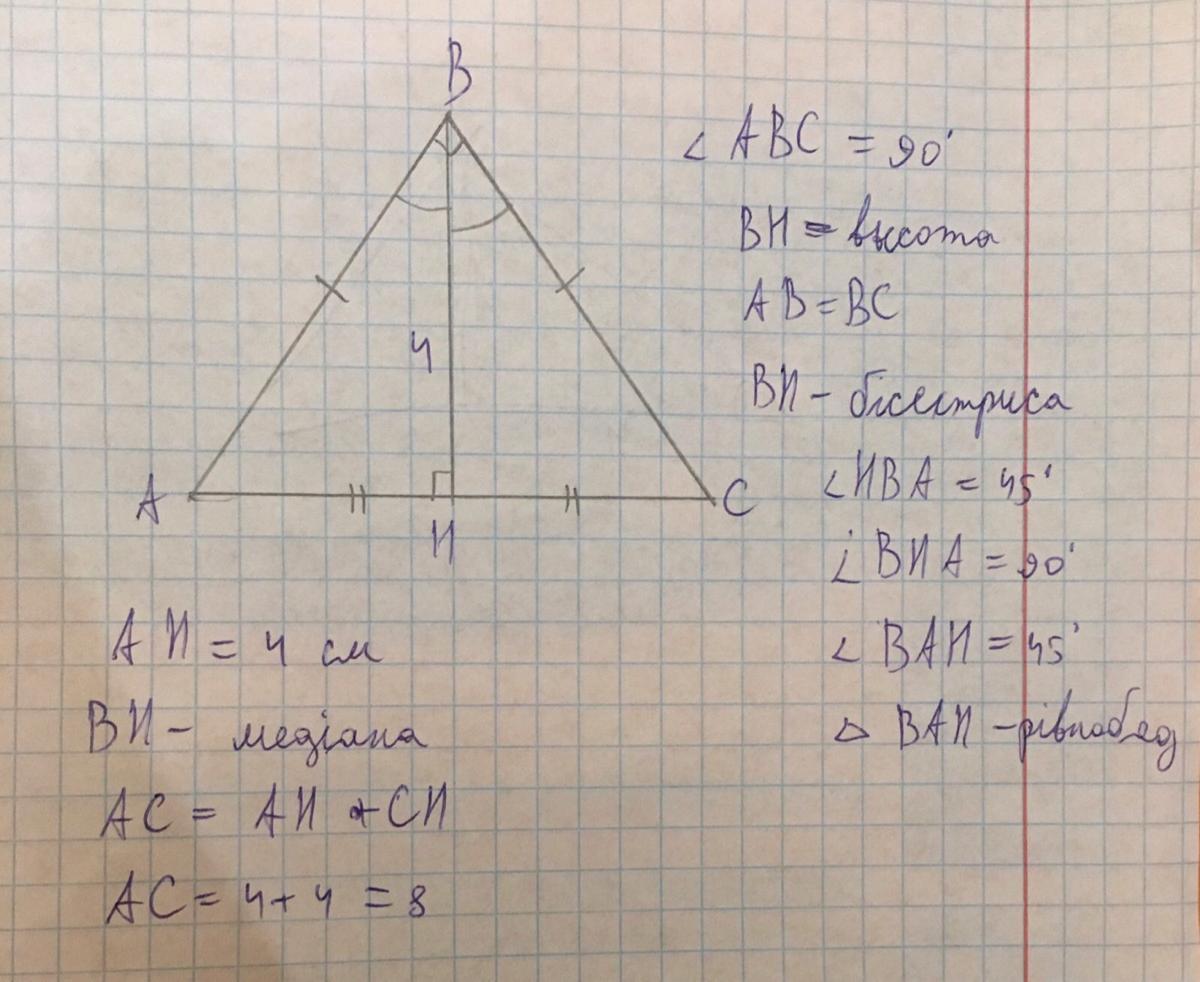 B
∠ ABC = 90°
BH = высота
AB = BC
4
BH - бісектриса
A
H
C
∠HBA = 45°
∠BHA = 90°
∠BAH = 45°
△ BAH - рівнобед
AH = 4 см
BH - медіана
AC = AH + CH
AC = 4 + 4 = 8